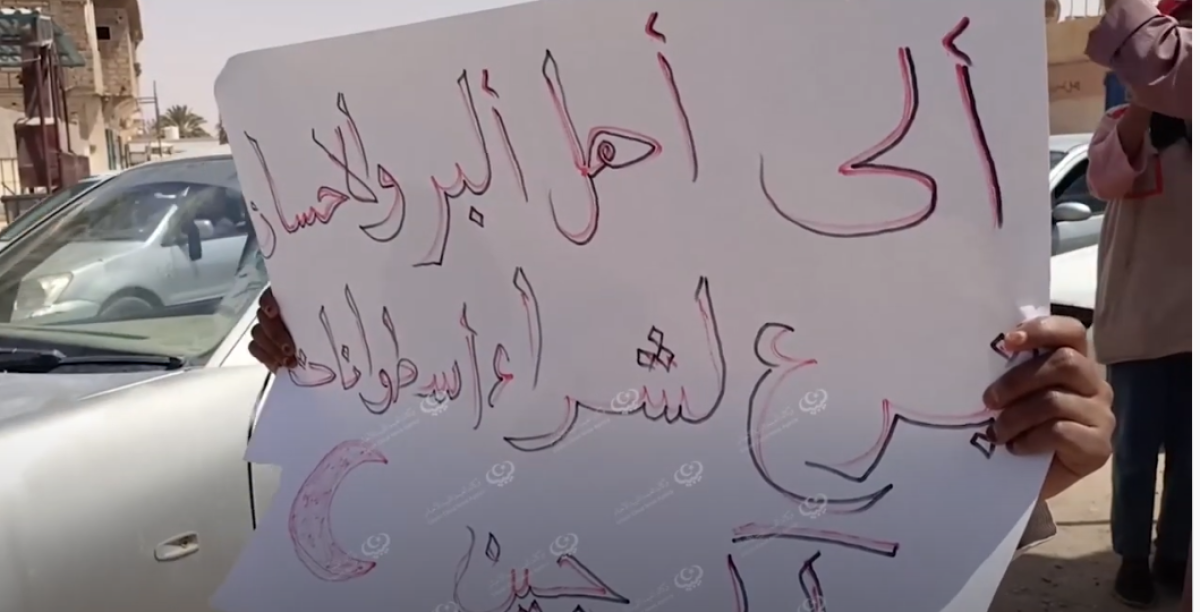 ألى أهل ألبر ولاحسان
تبرع لشراء أسطوانات